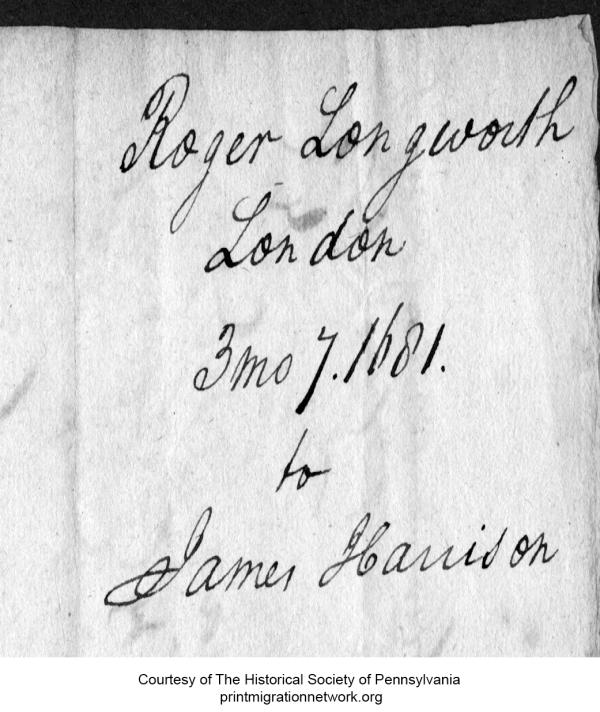 Roger Longworth
London
3mo 7. 1681.
to
James Harrison
Courtesy of The Historical Society of Pennsylvania
printmigrationnetwork.org